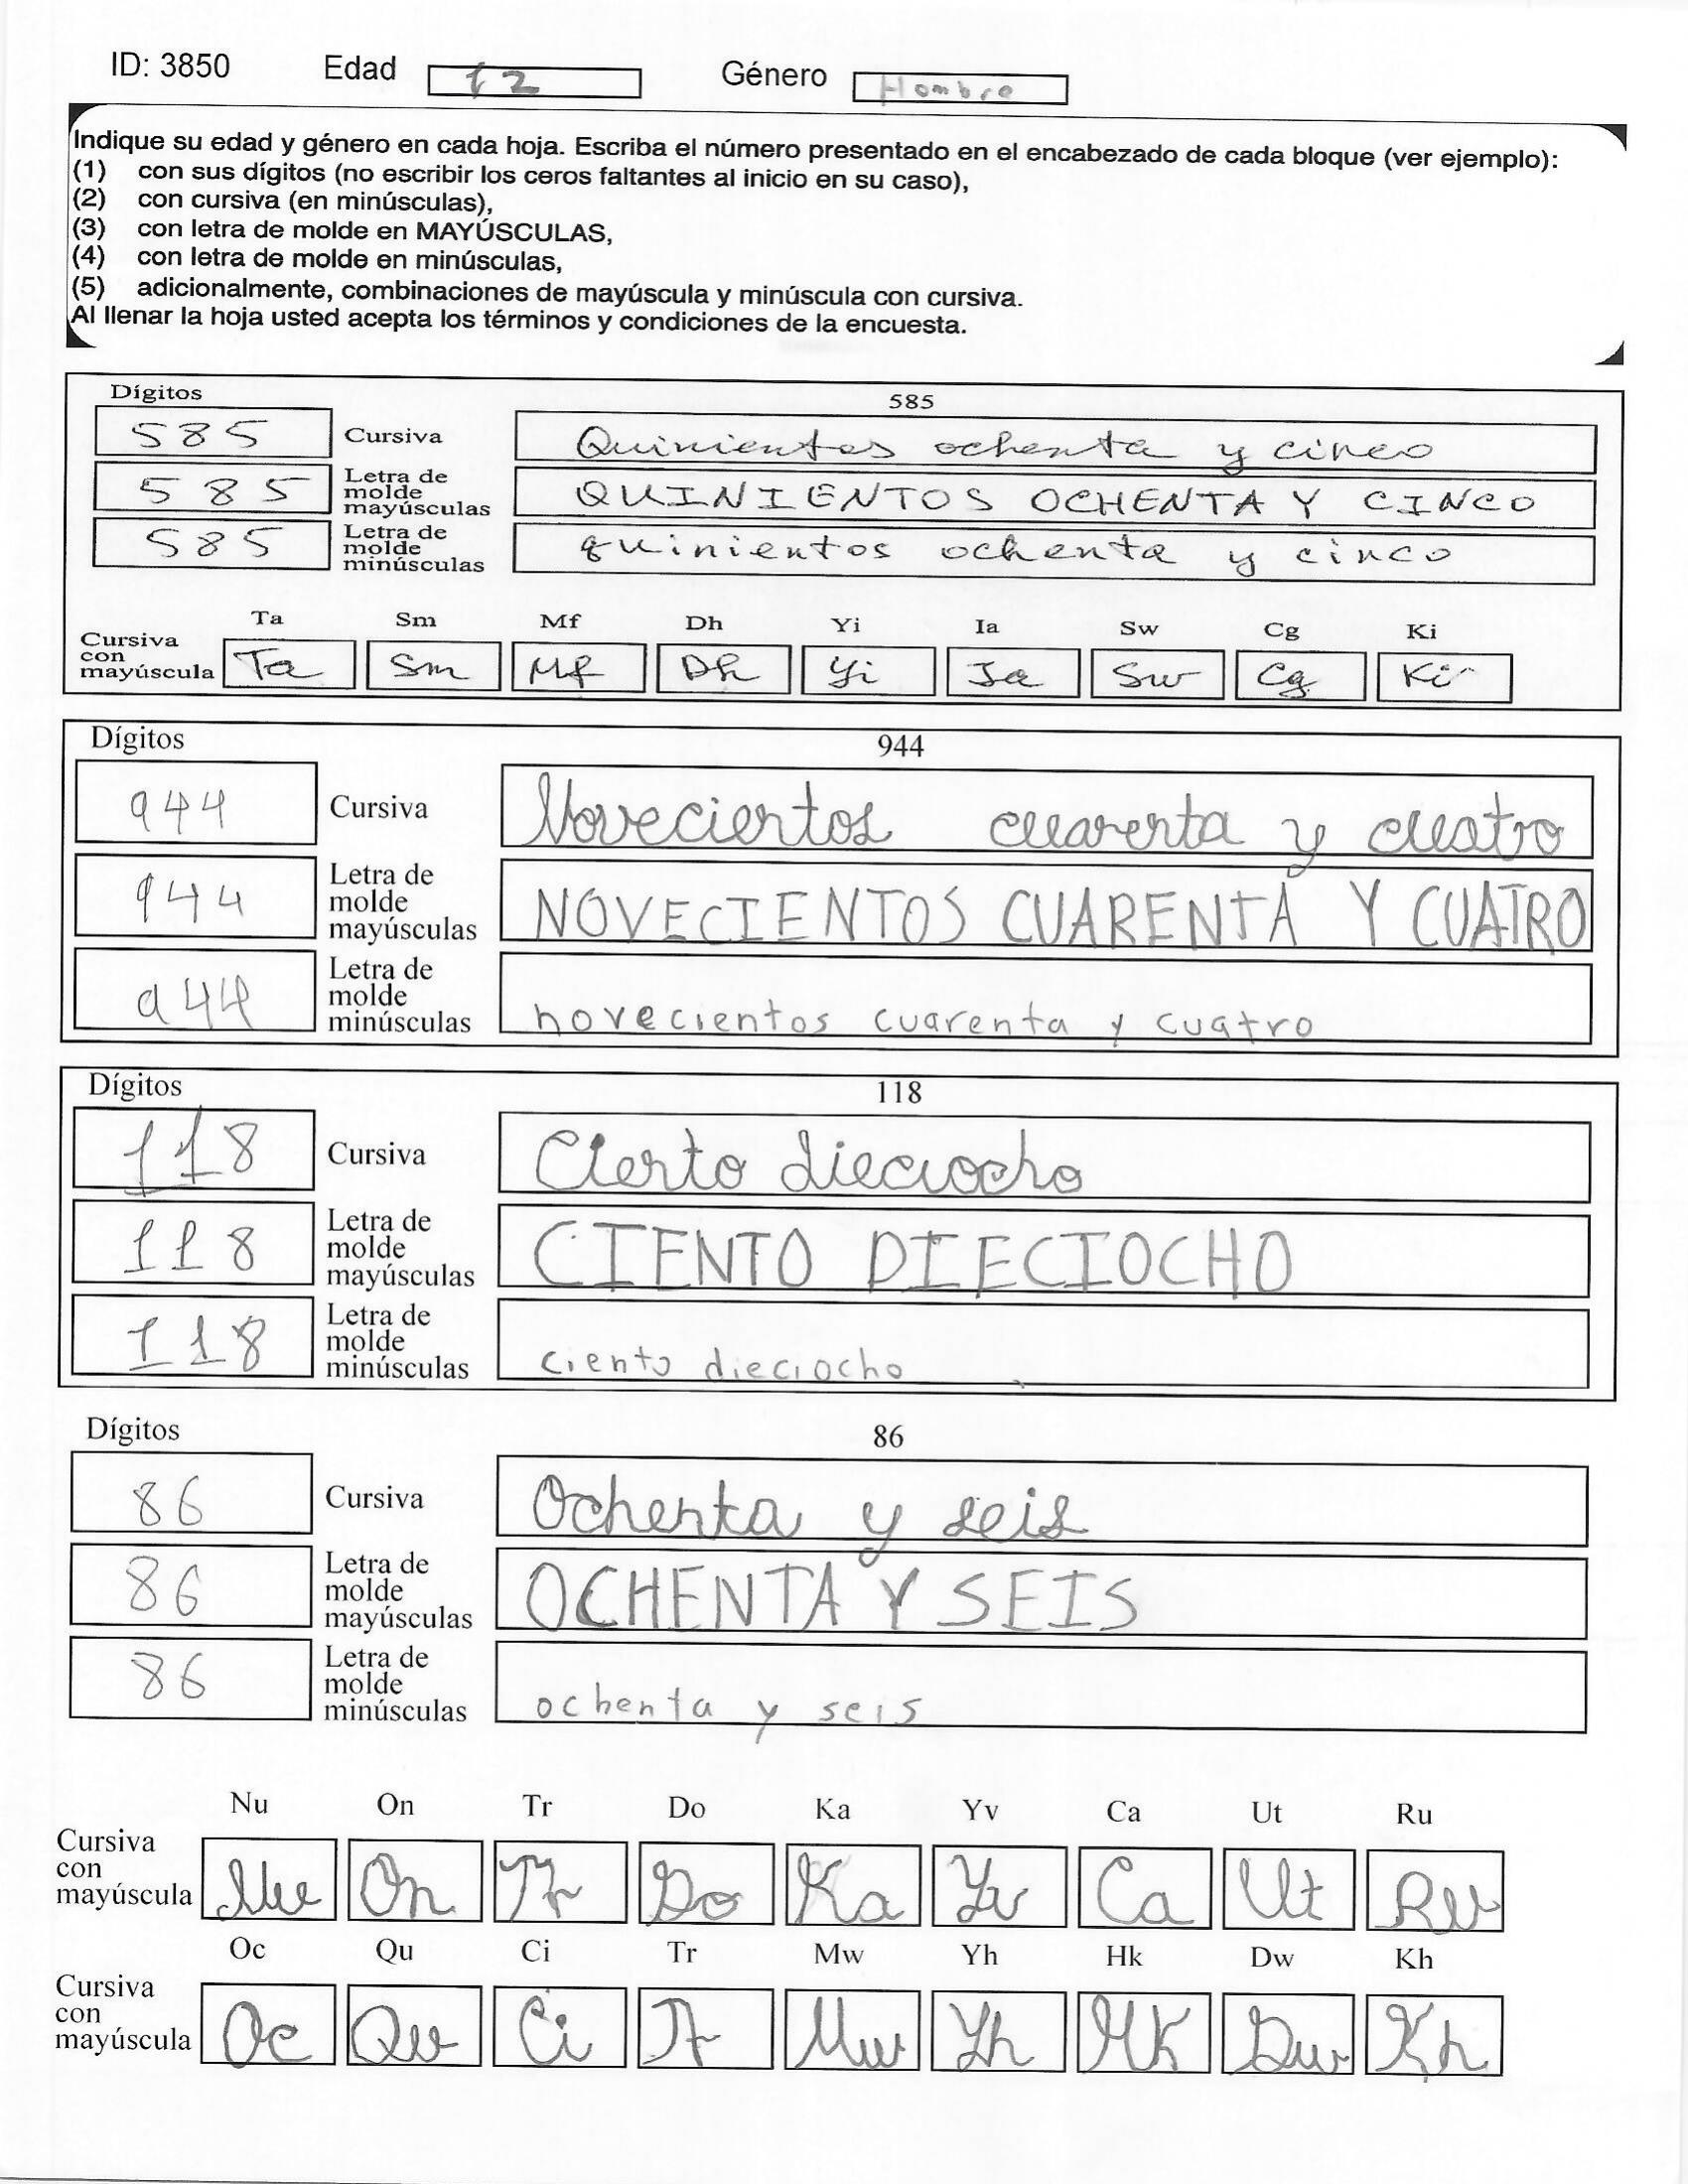 ID: 3850 Edad 12 Género Hombre
Indique su edad y género en cada hoja. Escriba el número presentado en el encabezado de cada bloque (ver ejemplo):
(1) con sus dígitos (no escribir los ceros faltantes al inicio en su caso),
(2) con cursiva (en minúsculas),
(3) con letra de molde en MAYÚSCULAS,
(4) con letra de molde en minúsculas,
(5) adicionalmente, combinaciones de mayúscula y minúscula con cursiva.
Al llenar la hoja usted acepta los términos y condiciones de la encuesta.
Dígitos 585
585 Cursiva Quinientos ochenta y cinco
585 Letra de molde mayúsculas QUINIENTOS OCHENTA Y CINCO
585 Letra de molde minúsculas quinientos ochenta y cinco
Ta Sm Mf Dh Yi Ia Sw Cg Ki
Cursiva con mayúscula Ta Sm Mf Dh Yi Ia Sw Cg Ki
Dígitos 944
944 Cursiva Novecientos cuarenta y cuatro
944 Letra de molde mayúsculas NOVECIENTOS CUARENTA Y CUATRO
944 Letra de molde minúsculas novecientos cuarenta y cuatro
Dígitos 118
118 Cursiva Ciento dieciocho
118 Letra de molde mayúsculas CIENTO DIECIOCHO
118 Letra de molde minúsculas ciento dieciocho
Dígitos 86
86 Cursiva Ochenta y seis
86 Letra de molde mayúsculas OCHENTA Y SEIS
86 Letra de molde minúsculas ochenta y seis
Nu On Tr Do Ka Yv Ca Ut Ru
Cursiva con mayúscula Nu On Tr Do Ka Yv Ca Ut Ru
Oc Qu Ci Tr Mw Yh Hk Dw Kh
Cursiva con mayúscula Oc Qu Ci Tr Mw Yh HK Dw Kh